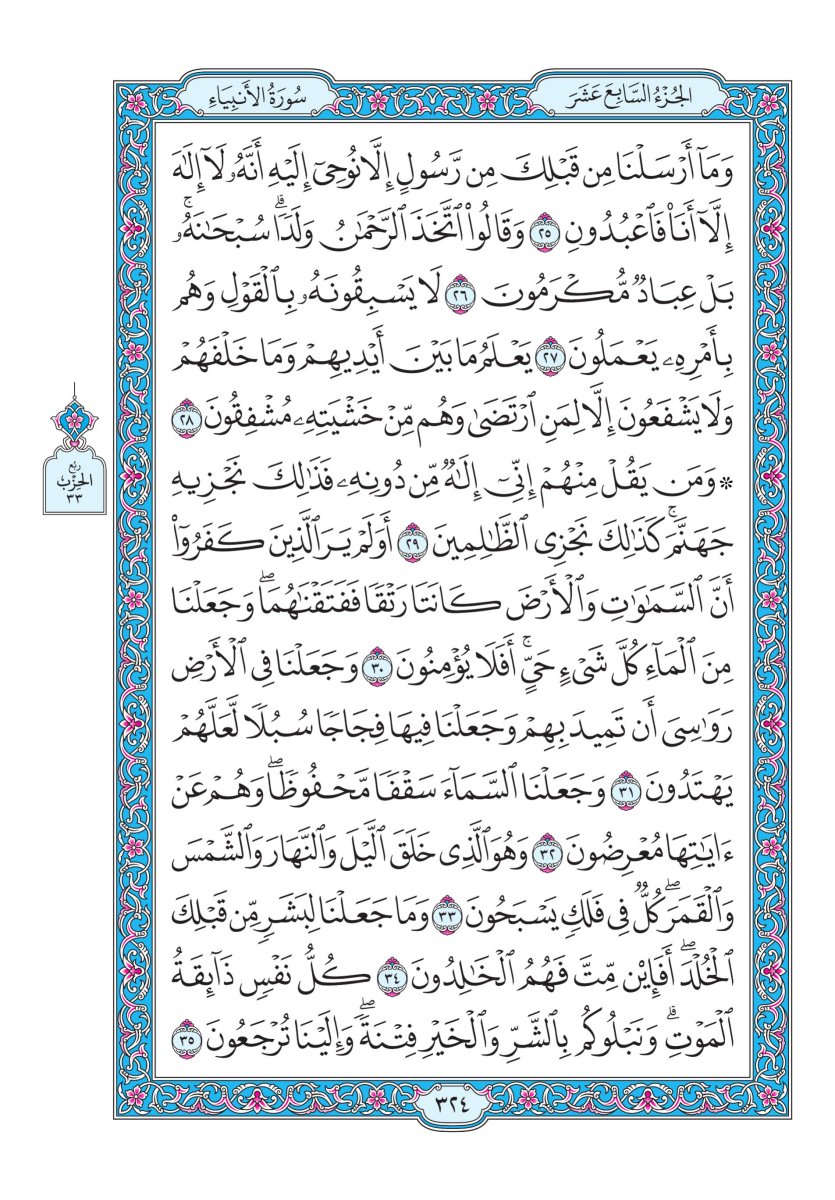 الجُزْءُ السَّابِعَ عَشَرَ
سُورَةُ الأَنبِيَاءِ
وَمَآ أَرْسَلْنَا مِن قَبْلِكَ مِن رَّسُولٍ إِلَّا نُوحِىٓ إِلَيْهِ أَنَّهُۥ لَآ إِلَٰهَ
إِلَّآ أَنَا۠ فَٱعْبُدُونِ ٢٥ وَقَالُوا۟ ٱتَّخَذَ ٱلرَّحْمَٰنُ وَلَدًۭا ۗ سُبْحَٰنَهُۥ ۚ
بَلْ عِبَادٌۭ مُّكْرَمُونَ ٢٦ لَا يَسْبِقُونَهُۥ بِٱلْقَوْلِ وَهُم
بِأَمْرِهِۦ يَعْمَلُونَ ٢٧ يَعْلَمُ مَا بَيْنَ أَيْدِيهِمْ وَمَا خَلْفَهُمْ
وَلَا يَشْفَعُونَ إِلَّا لِمَنِ ٱرْتَضَىٰ وَهُم مِّنْ خَشْيَتِهِۦ مُشْفِقُونَ ٢٨
* وَمَن يَقُلْ مِنْهُمْ إِنِّىٓ إِلَٰهٌۭ مِّن دُونِهِۦ فَذَٰلِكَ نَجْزِيهِ
جَهَنَّمَ ۚ كَذَٰلِكَ نَجْزِى ٱلظَّٰلِمِينَ ٢٩ أَوَلَمْ يَرَ ٱلَّذِينَ كَفَرُوٓا۟
أَنَّ ٱلسَّمَٰوَٰتِ وَٱلْأَرْضَ كَانَتَا رَتْقًۭا فَفَتَقْنَٰهُمَا ۖ وَجَعَلْنَا
مِنَ ٱلْمَآءِ كُلَّ شَىْءٍ حَىٍّ ۚ أَفَلَا يُؤْمِنُونَ ٣٠ وَجَعَلْنَا فِى ٱلْأَرْضِ
رَوَٰسِىَ أَن تَمِيدَ بِهِمْ وَجَعَلْنَا فِيهَا فِجَاجًۭا سُبُلًۭا لَّعَلَّهُمْ
يَهْتَدُونَ ٣١ وَجَعَلْنَا ٱلسَّمَآءَ سَقْفًۭا مَّحْفُوظًۭا ۖ وَهُمْ عَنْ
ءَايَٰتِهَا مُعْرِضُونَ ٣٢ وَهُوَ ٱلَّذِى خَلَقَ ٱلَّيْلَ وَٱلنَّهَارَ وَٱلشَّمْسَ
وَٱلْقَمَرَ ۖ كُلٌّۭ فِى فَلَكٍۢ يَسْبَحُونَ ٣٣ وَمَا جَعَلْنَا لِبَشَرٍۢ مِّن قَبْلِكَ
ٱلْخُلْدَ ۖ أَفَإِي۟ن مِّتَّ فَهُمُ ٱلْخَٰلِدُونَ ٣٤ كُلُّ نَفْسٍۢ ذَآئِقَةُ
ٱلْمَوْتِ ۗ وَنَبْلُوكُم بِٱلشَّرِّ وَٱلْخَيْرِ فِتْنَةًۭ ۖ وَإِلَيْنَا تُرْجَعُونَ ٣٥
رُبْع
الحِزْب
٣٣
٣٢٤